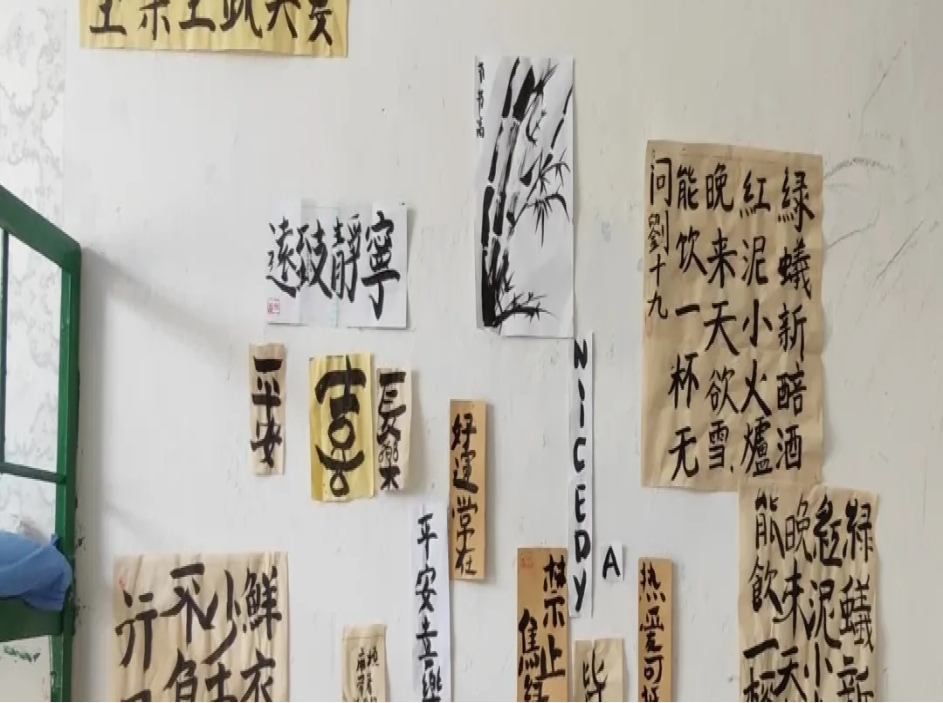 节节高
寧靜致遠
緑蟻新醅酒
紅泥小火爐
晚来天欲雪.
能饮一杯无
问劉十九
平安
長樂
好運常在
NiCEDY
A
平安喜樂
禁止
热爱可
皆
鮮衣
少
不負
行
緑蟻新
紅泥小
晚来天
能飲一杯